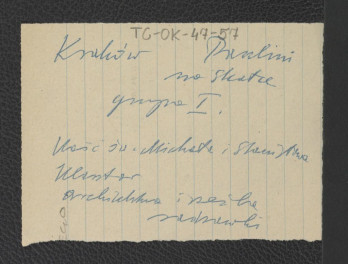 TG-OK-47-57
Kraków Paulini
na Skałce
grupa I.
Kość św. Michała i Stanisława
Klasztor
architektura i rzeźba
sadzawki